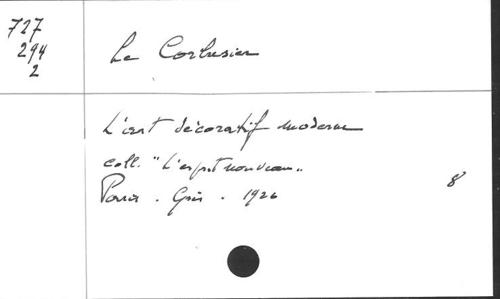 727
294
2
Le Corbusier
L'art décoratif moderne
coll. "L'esprit nouveau"
Paris. Grès. 1926
8°